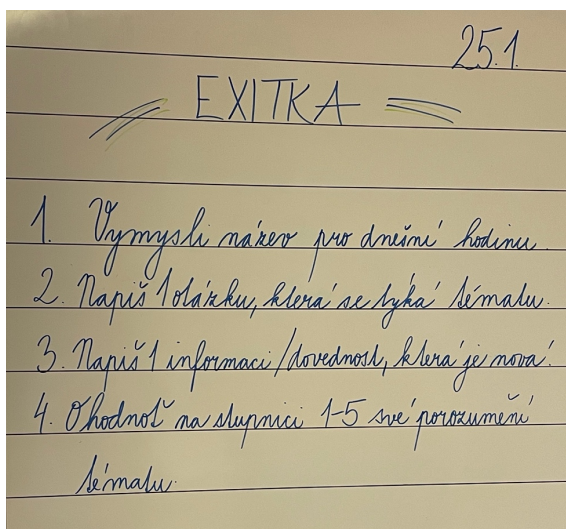 25.1.
EXITKA
1. Vymysli název pro dnešní hodinu.
2. Napiš 1 otázku, která se týká tématu.
3. Napiš 1 informaci/dovednost, která je nová.
4. Ohodnoť na stupnici 1-5 své porozumění
tématu.